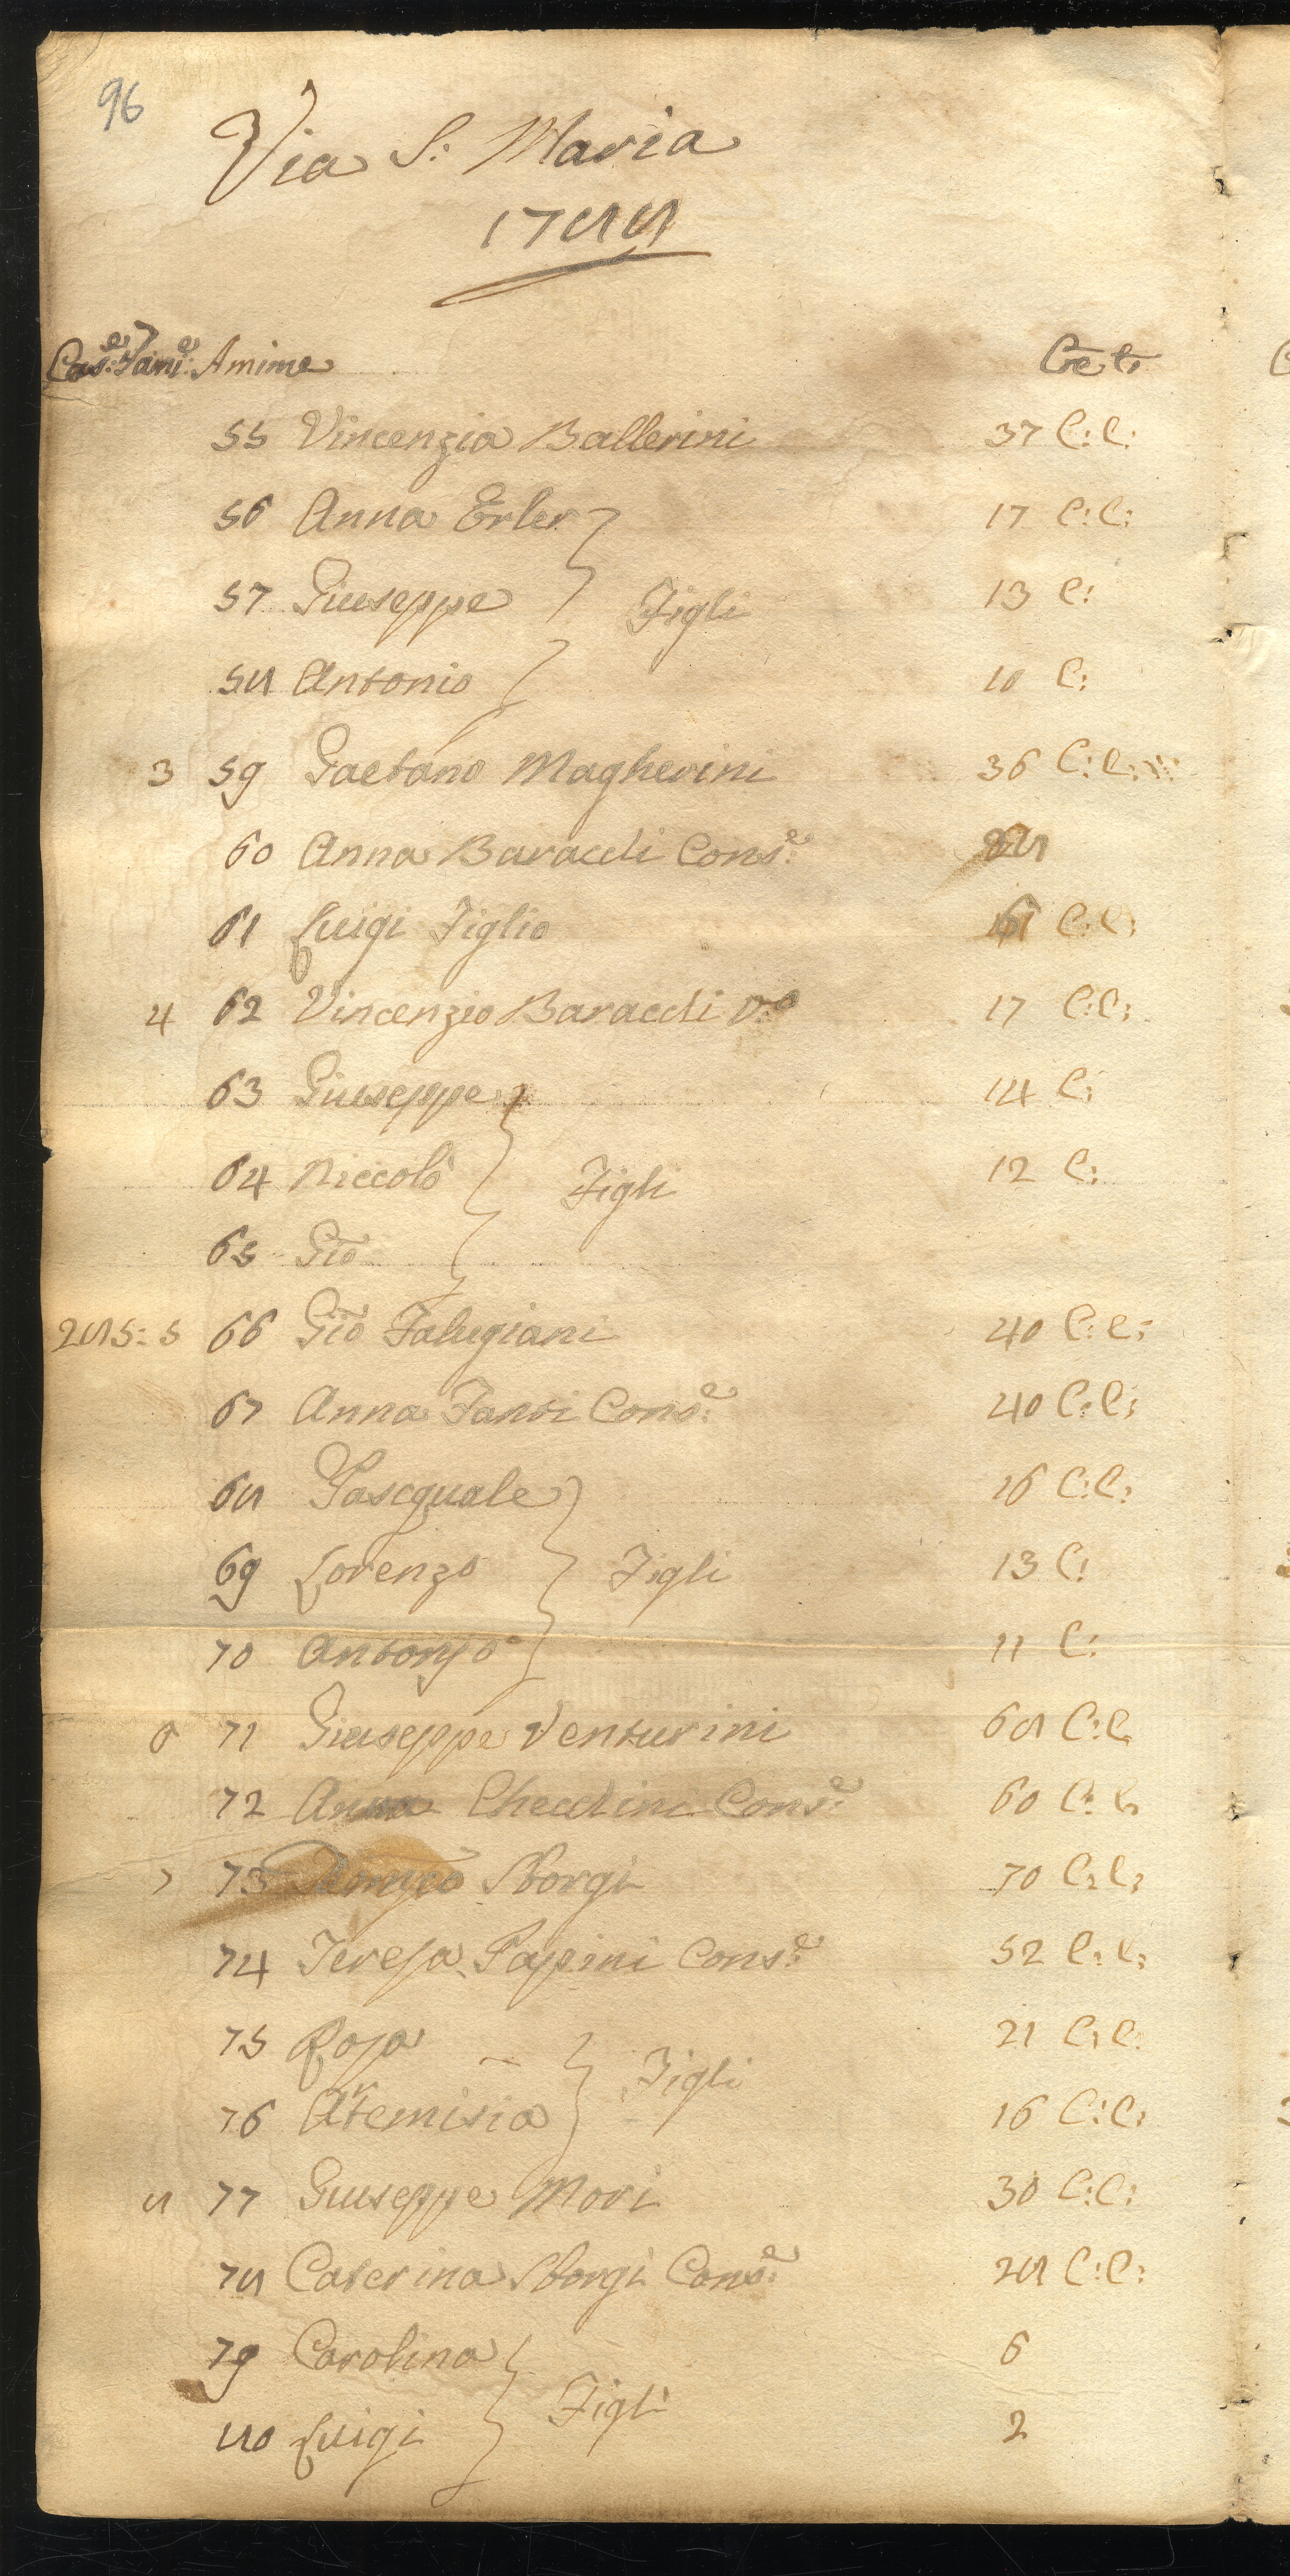 96
Via S: Maria
1788
Cas:e Fam:e Amime Età
55 Vincenzia Ballerini 37 C: C:
56 Anna Erler 17 C: C:
57 Giuseppe Figli 13 C:
58 Antonio 10 C:
3 59 Gaetano Magherini 36 C: C:
60 Anna Baracchi Cons:e
61 Luigi Figlio C: C:
4 62 Vincenzio Baracchi V:o 17 C: C:
63 Giuseppe 14 C:
64 Niccolò Figli 12 C:
65 Gio
285: 5 66 Gio Falugiani 40 C: C:
67 Anna Fansi Cons:e 40 C: C:
68 Pascquale 16 C: C:
69 Lorenzo Figli 13 C:
70 Antonjo 11 C:
6 71 Giuseppe Venturini 68 C: C:
72 Anna Checchini Cons:e 60 C: C:
7 73 Domco Sborgi 70 C: C:
74 Teresa Papini Cons:e 52 C: C:
75 Rosa Figli 21 C: C:
76 Artemisia 16 C: C:
8 77 Giuseppe Mori 30 C: C:
78 Caterina Sborgi Cons:e 28 C: C:
79 Carolina 6
80 Luigi Figli 2